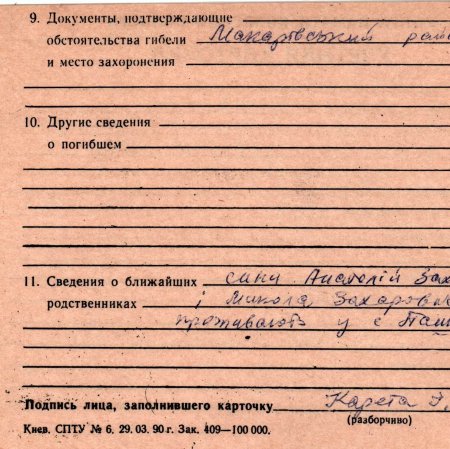 9. Документы, подтверждающие
обстоятельства гибели Макарівський
и место захоронения
10. Другие сведения
о погибшем
11. Сведения о ближайших сини Анатолій Зах
родственниках і Микола Захаров
проживають у с
Подпись лица, заполнившего карточку Карета
(разборчиво)
Киев. СПТУ № 6. 29. 03. 90 г. Зак. 409—100 000.